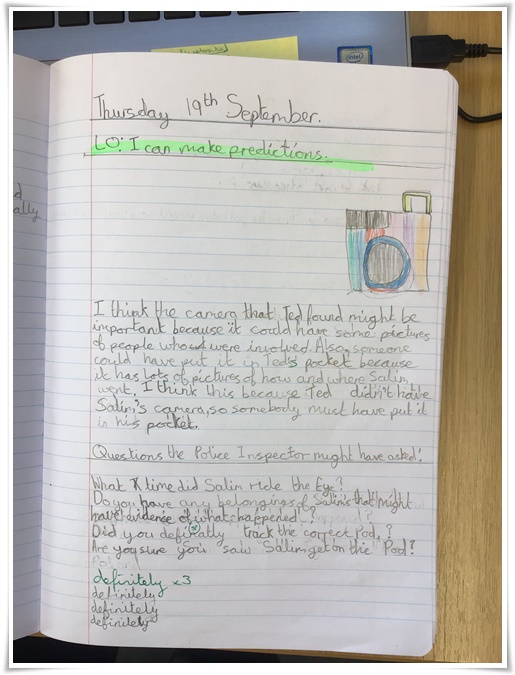 Thursday 19th September.
LO: I can make predictions.
I think the camera that Ted found might be
important because it could have some pictures
of people who were involved. Also, someone
could have put it in Ted's pocket because
it has lots of pictures of how and where Salim
went. I think this because Ted didn't have
Salim's camera, so somebody must have put it
in his pocket.
Questions the Police Inspector might have asked:
What time did Salim ride the Eye?
Do you have any belongings of Salim's that might
have evidence of what happened?
Did you definatly track the correct Pod?
Are you sure you saw Salim get on the Pod?
definitely x3
definitely
definitely
definitely
ally
intel